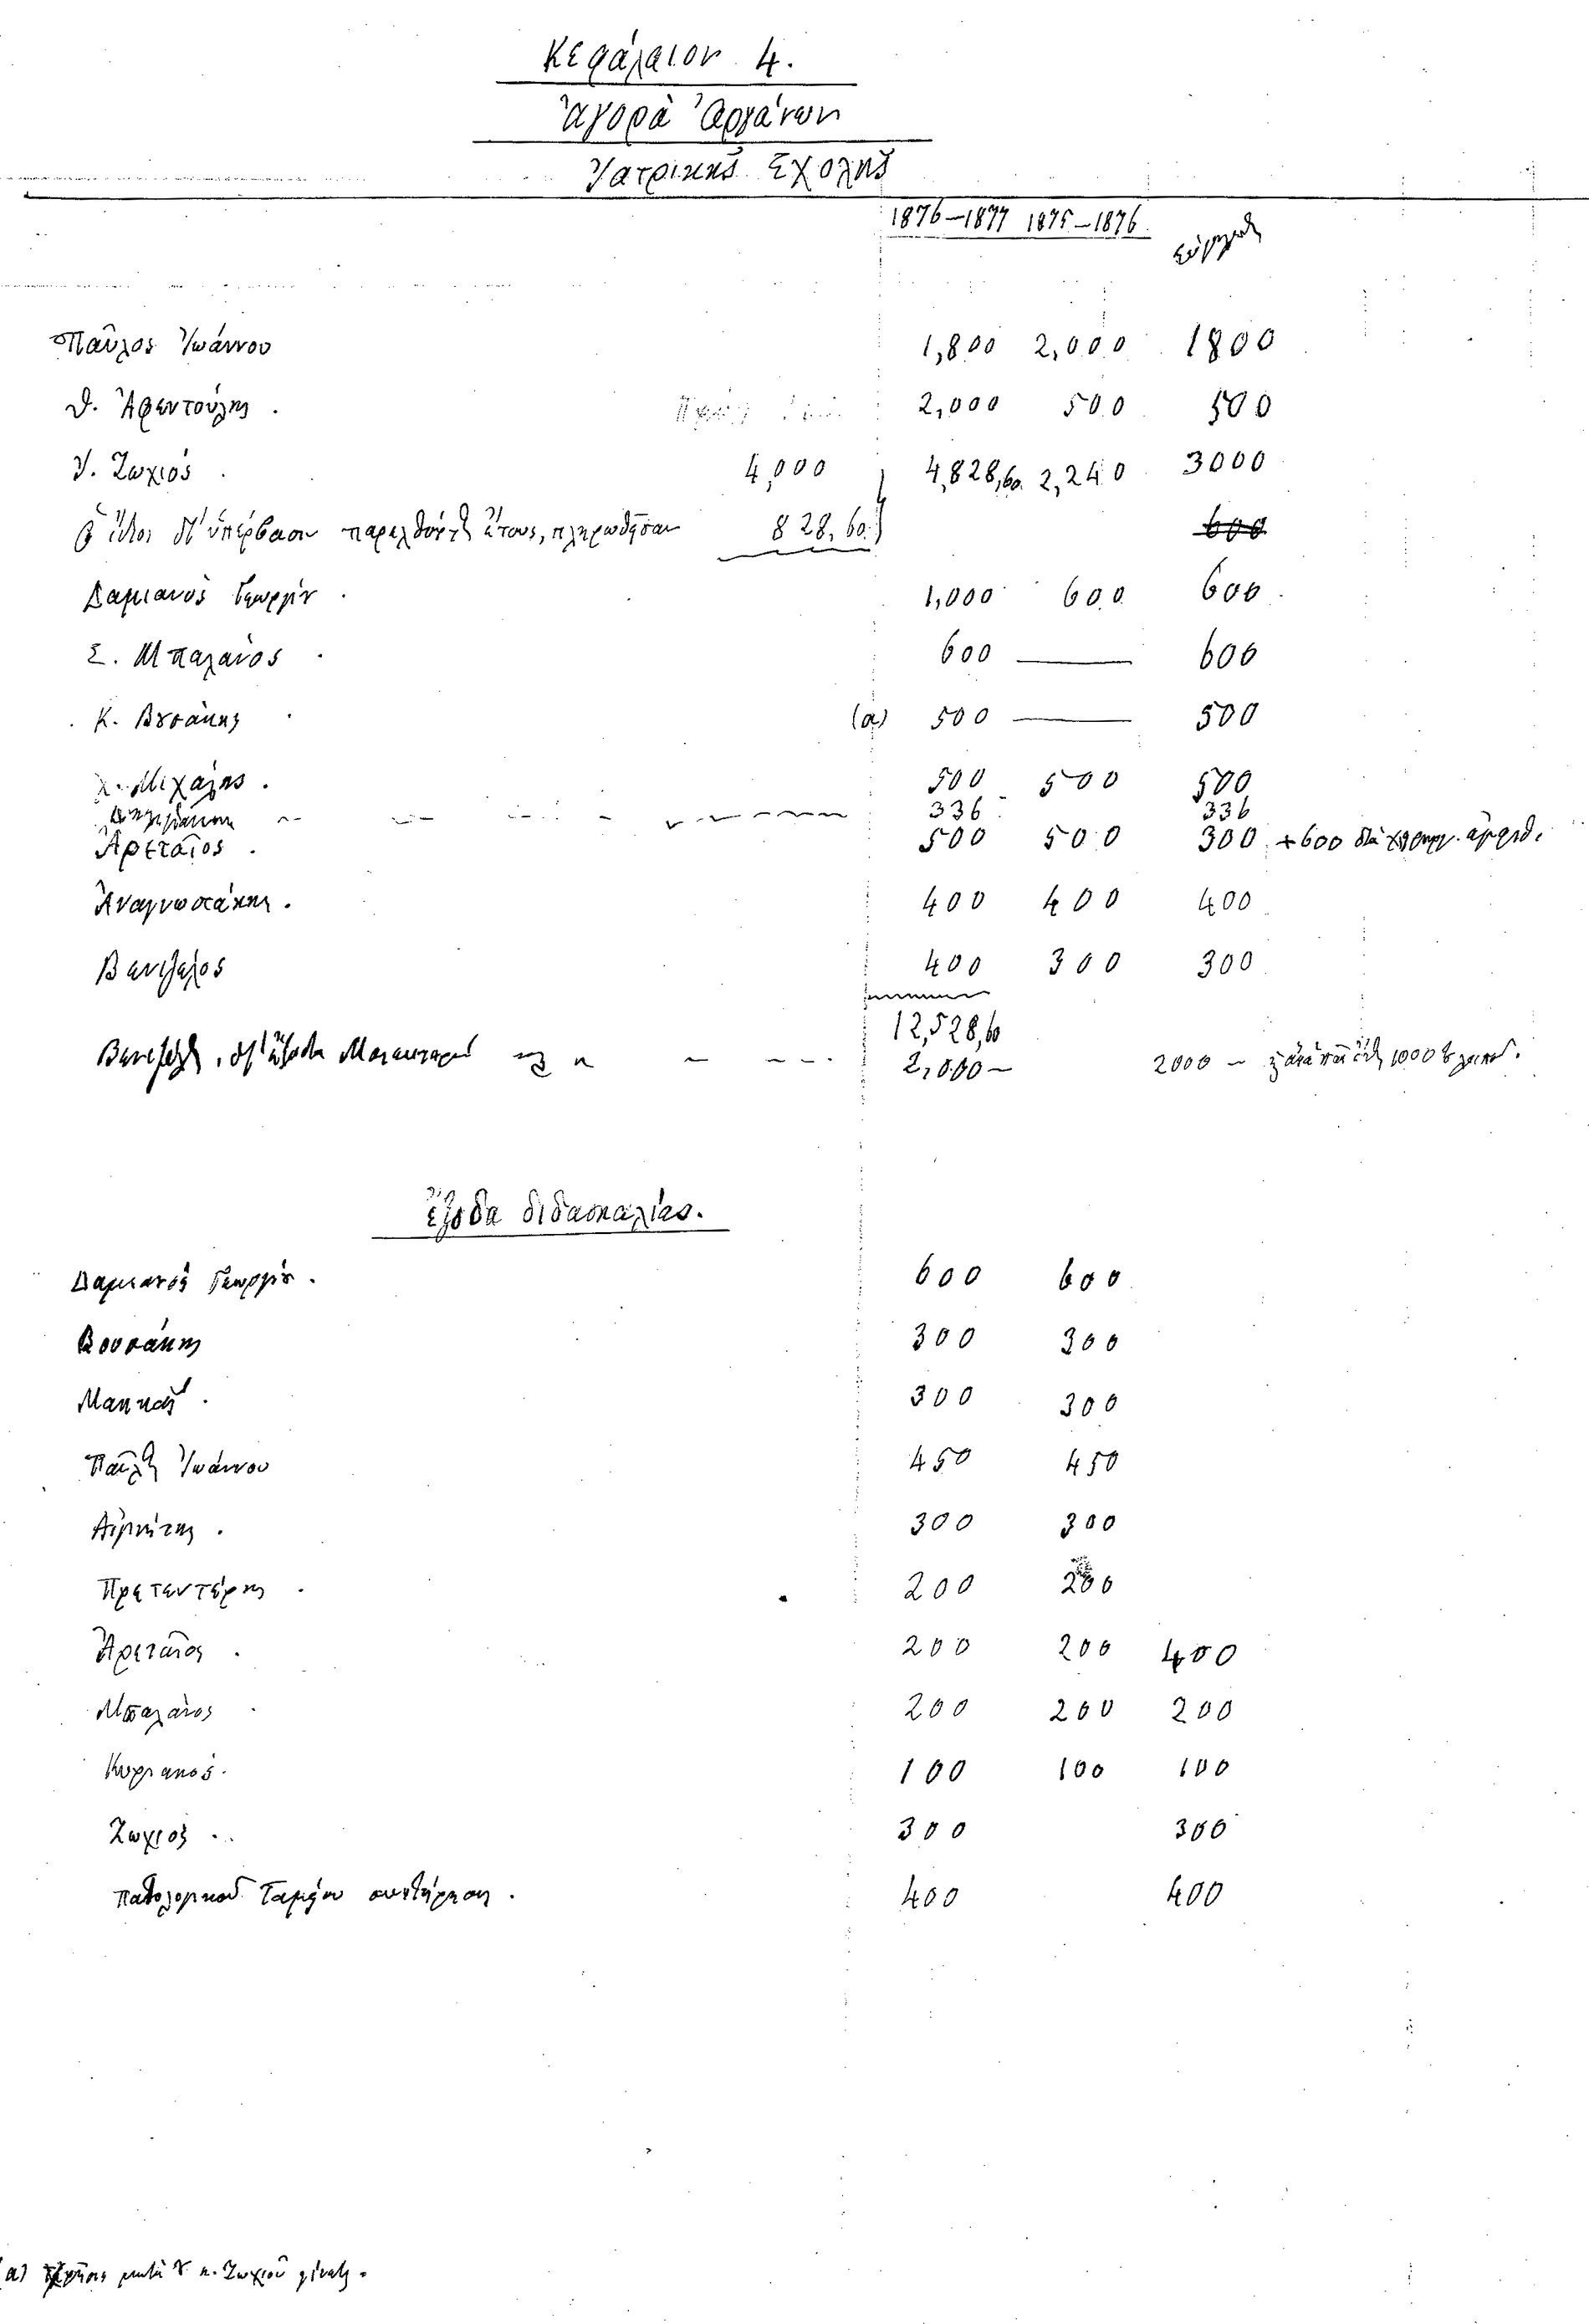 Κεφάλαιον 4.
Ἀγορὰ Ὀργάνων
Ἰατρικῆς Σχολῆς
1876–1877 1875–1876
Παῦλος Ἰωάννου 1,800 2,000 1800
Θ. Ἀφεντούλης . 2,000 500 500
Ι. Ζωχιός 4,000 4,828,60 2,240 3000
Ὁ ἴδιος δι' ὑπέρβασιν παρελθόντος ἔτους, πληρωθεῖσαν 828,60 600
Δαμιανὸς Γεωργίου 1,000 600 600
Σ. Μπαλάνος 600 — 600
Κ. Βουσάκης (α) 500 — 500
Μιχαλης . 500 500 500
336 336
Ἀρεταῖος . 500 500 300 +600 διὰ
Ἀναγνωστάκης . 400 400 400
Βενιζέλος 400 300 300
12,528,60
Βενιζέλος, δι' ἔξοδα Μαιευτηρίου 2,000 – 2000 – 1000
Ἔξοδα διδασκαλίας.
Δαμιανὸς Γεωργίου . 600 600
Βουσάκης 300 300
Μακκᾶς . 300 300
Παῦλος Ἰωάννου 450 450
Αἰγινήτης . 300 300
Πρετεντέρης . 200 200
Ἀρεταῖος . 200 200 400
Μπαλάνος . 200 200 200
Κυριακός . 100 100 100
Ζωχιός . 300 300
Παθολογικοῦ Ταμείου συντήρησις . 400 400
(α) μετὰ τοῦ κ. Ζωχιοῦ